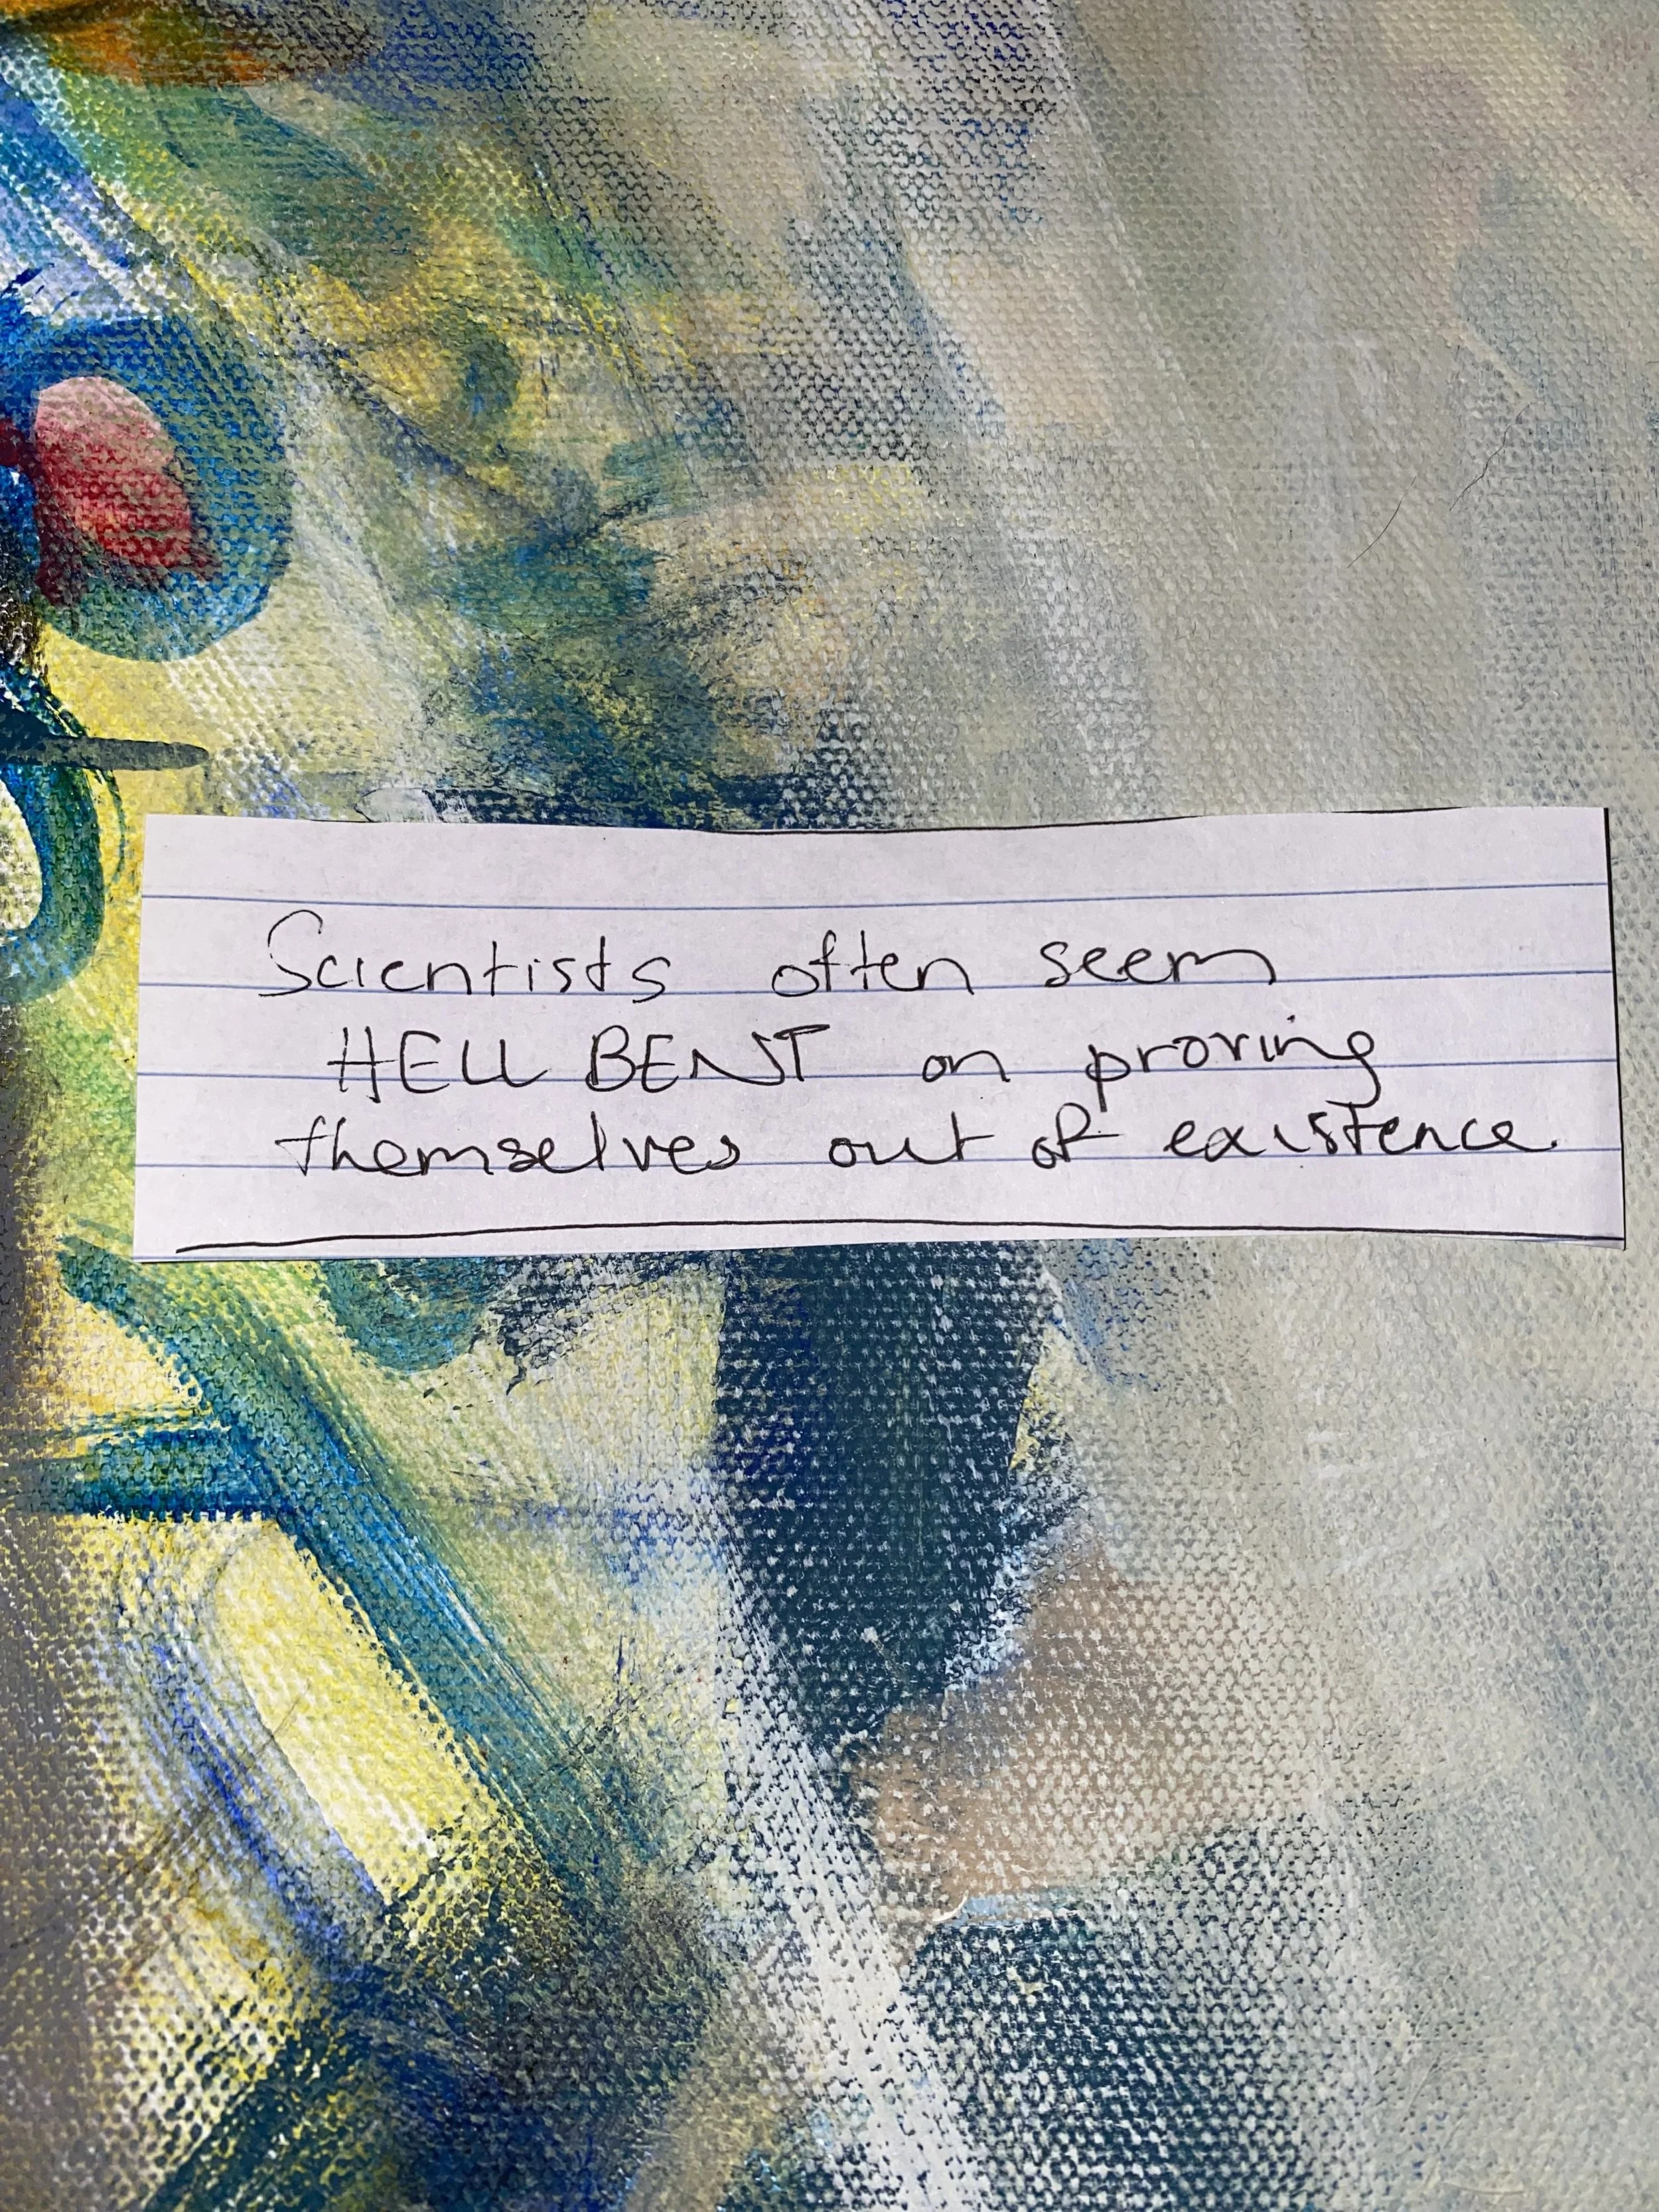 Scientists often seem
HELL BENT on proving
themselves out of existence